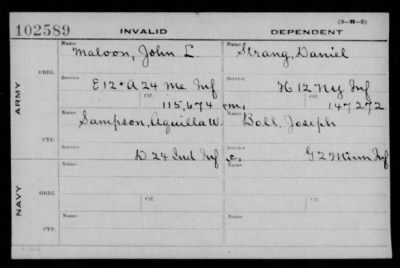 (3-H-2)
102589 INVALID DEPENDENT
Name Maloon, John L Name Strang, Daniel
ARMY
ORIG. Service E 12 + A 24 Me Inf Service H 12 Ny Inf
Ctf. 115,674 Ctf. 147272
Name Sampson, Aquilla W. Name Boll, Joseph
CTF. Service D 24 Ind Inf Service G 2 Minn Inf
NAVY
Name Name
ORIG. Service Ctf. Service Ctf.
Name Name
CTF. Service Service